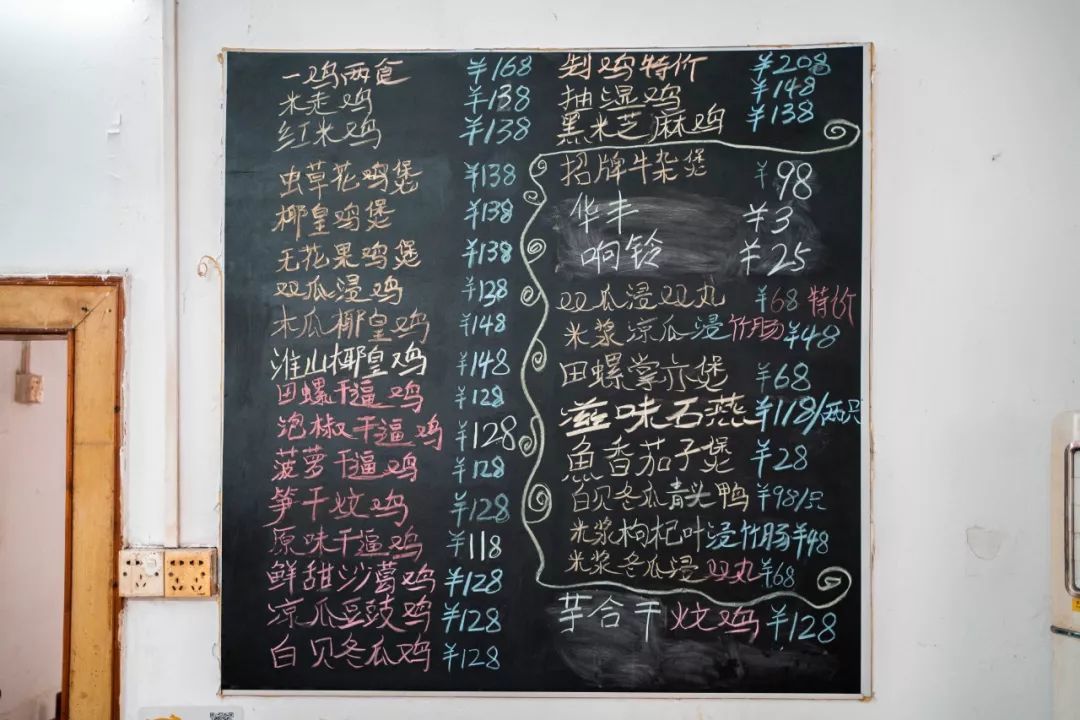 一鸡两食 ¥168
米走鸡 ¥138
红米鸡 ¥138
虫草花鸡煲 ¥138
椰皇鸡煲 ¥138
无花果鸡煲 ¥138
双瓜浸鸡 ¥138
木瓜椰皇鸡 ¥148
淮山椰皇鸡 ¥148
田螺干逼鸡 ¥128
泡椒干逼鸡 ¥128
菠萝干逼鸡 ¥128
笋干炆鸡 ¥128
原味干逼鸡 ¥118
鲜甜沙葛鸡 ¥128
凉瓜豆豉鸡 ¥128
白贝冬瓜鸡 ¥128
制鸡特价 ¥208
抽湿鸡 ¥148
黑米芝麻鸡 ¥138
招牌牛杂煲 ¥98
华丰 ¥3
响铃 ¥25
双瓜浸双丸 ¥68 特价
米浆凉瓜浸竹肠 ¥48
田螺掌亦煲 ¥68
滋味石燕 ¥118/两只
魚香茄子煲 ¥28
白贝冬瓜青头鸭 ¥98/只
米浆枸杞叶浸竹肠 ¥48
米浆冬瓜浸双丸 ¥68
芋合干炆鸡 ¥128